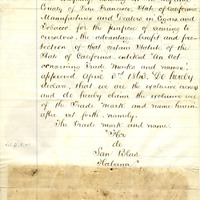 County of San Francisco, State of California,
Manufacturers and Dealers in Cigars and
Tobacco for the purpose of securing to
ourselves the advantage, benefit and pro-
tection of that certain Statute of the
State of California entitled "An Act
concerning Trade Marks and names",
approved April 3d 1863. Do hereby
declare, that we are the exclusive owners
and do hereby claim the exclusive use
of the Trade Mark and name herein
after set forth, namely.
The Trade mark and name
"Flor
de
San Blas
Habana"